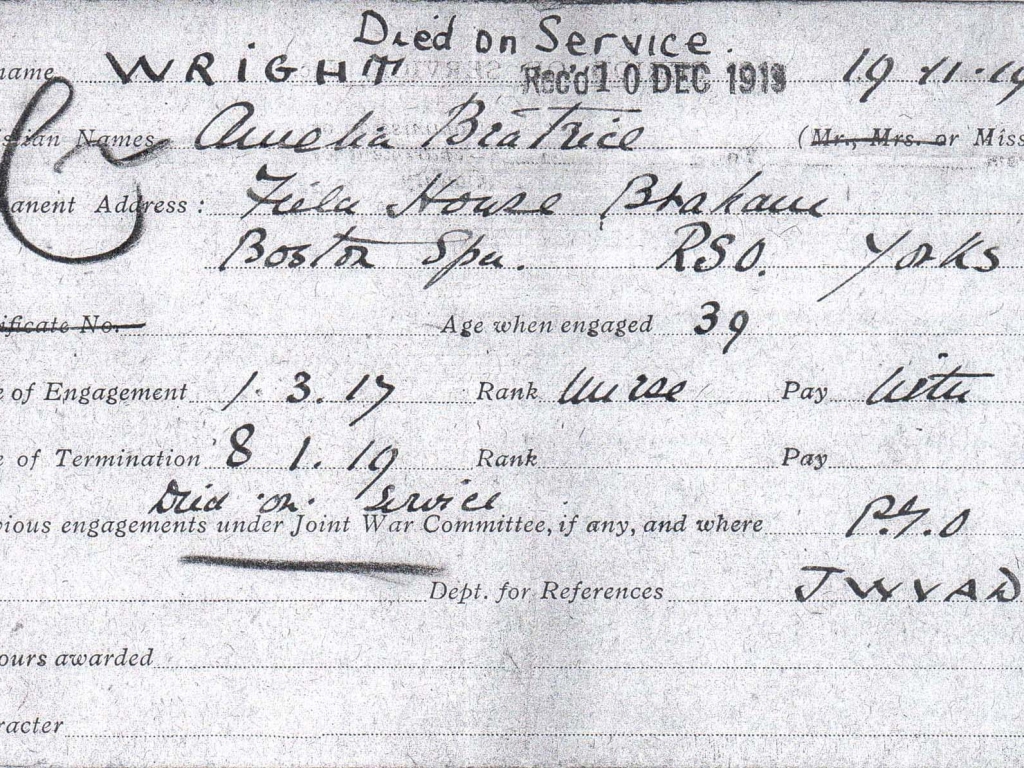 Died on Service.
name WRIGHT Rec'd 10 DEC 1919 19.11.19
sian Names Amelia Beatrice (Mr., Mrs. or Miss
anent Address: Field House Braham
Boston Spa. RSO. Yorks
ificate No. Age when engaged 39
e of Engagement 1.3.17 Rank Nurse Pay
e of Termination 8 1.19 Rank Pay
Died on Service
vious engagements under Joint War Committee, if any, and where P.T.O
Dept. for References JWVAD
ours awarded
racter